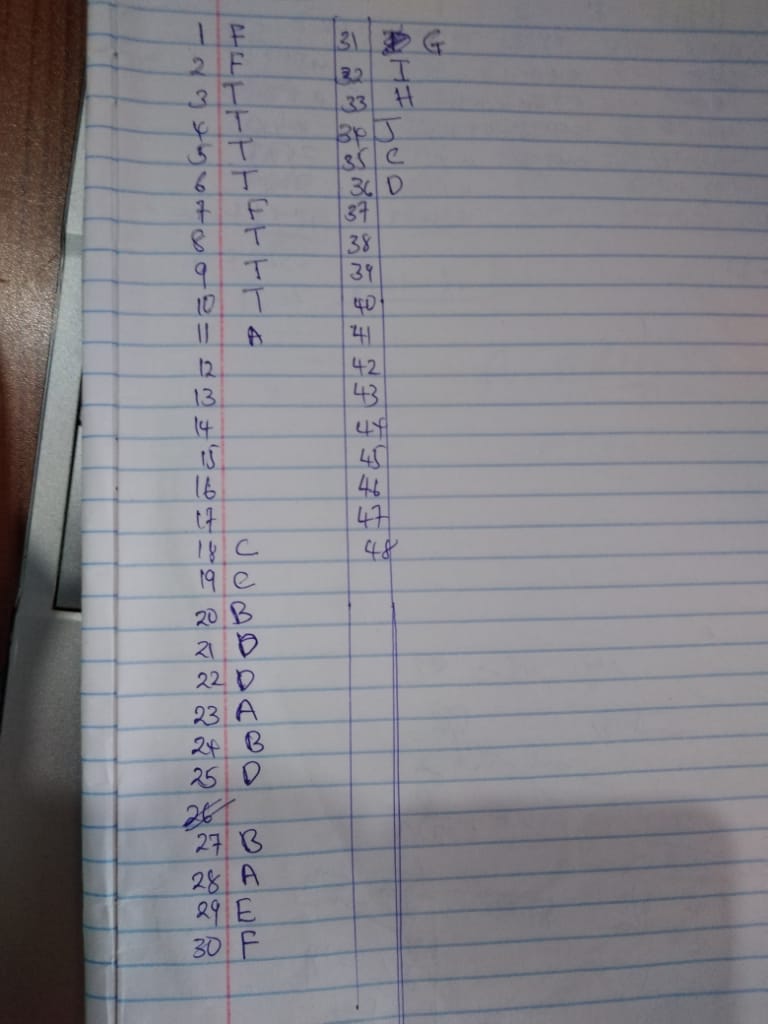 1 F
2 F
3 T
4 T
5 T
6 T
7 F
8 T
9 T
10 T
11 A
12
13
14
15
16
17
18 C
19 C
20 B
21 D
22 D
23 A
24 B
25 D
26
27 B
28 A
29 E
30 F
31 G
32 I
33 H
34 J
35 C
36 D
37
38
39
40
41
42
43
44
45
46
47
48